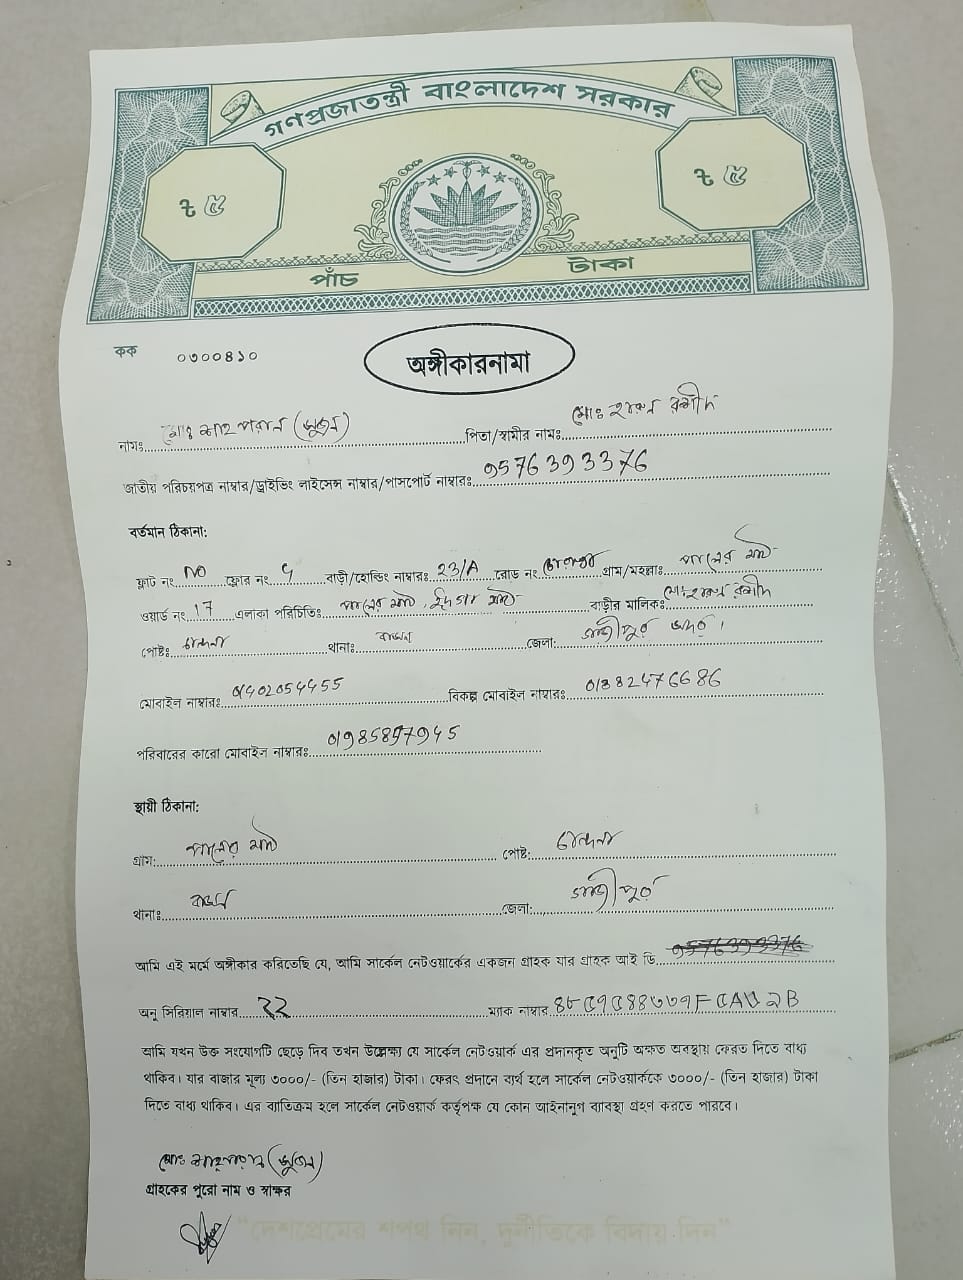 গণপ্রজাতন্ত্রী বাংলাদেশ সরকার
৳ ৫ ৳ ৫
পাঁচ টাকা
কক ০৩০০৪১০
অঙ্গীকারনামা
নামঃ মোঃ (সুজন) পিতা/স্বামীর নামঃ মোঃ হারুন রশীদ
জাতীয় পরিচয়পত্র নাম্বার/ড্রাইভিং লাইসেন্স নাম্বার/পাসপোর্ট নাম্বারঃ 9576393376
বর্তমান ঠিকানা:
ফ্লাট নং NO ফ্লোর নং বাড়ী/হোল্ডিং নাম্বারঃ 23/A রোড নং গ্রাম/মহল্লাঃ
ওয়ার্ড নং 17 এলাকা পরিচিতিঃ বাড়ীর মালিকঃ মোঃ হারুন রশীদ
পোষ্টঃ চান্দনা থানাঃ বাসন জেলা: গাজীপুর সদর।
মোবাইল নাম্বারঃ বিকল্প মোবাইল নাম্বারঃ
পরিবারের কারো মোবাইল নাম্বারঃ
স্থায়ী ঠিকানা:
গ্রাম: পোষ্ট: চান্দনা
থানাঃ বাসন জেলা: গাজীপুর
আমি এই মর্মে অঙ্গীকার করিতেছি যে, আমি সার্কেল নেটওয়ার্কের একজন গ্রাহক যার গ্রাহক আই ডি
অনু সিরিয়াল নাম্বার 22 ম্যাক নাম্বার
আমি যখন উক্ত সংযোগটি ছেড়ে দিব তখন উল্লেক্ষ্য যে সার্কেল নেটওয়ার্ক এর প্রদানকৃত অনুটি অক্ষত অবস্থায় ফেরত দিতে বাধ্য
থাকিব। যার বাজার মূল্য ৩০০০/- (তিন হাজার) টাকা। ফেরৎ প্রদানে ব্যর্থ হলে সার্কেল নেটওয়ার্ককে ৩০০০/- (তিন হাজার) টাকা
দিতে বাধ্য থাকিব। এর ব্যতিক্রম হলে সার্কেল নেটওয়ার্ক কর্তৃপক্ষ যে কোন আইনানুগ ব্যাবস্থা গ্রহণ করতে পারবে।
মোঃ (সুজন)
গ্রাহকের পুরো নাম ও স্বাক্ষর
"দেশপ্রেমের শপথ নিন, দুর্নীতিকে বিদায় দিন"